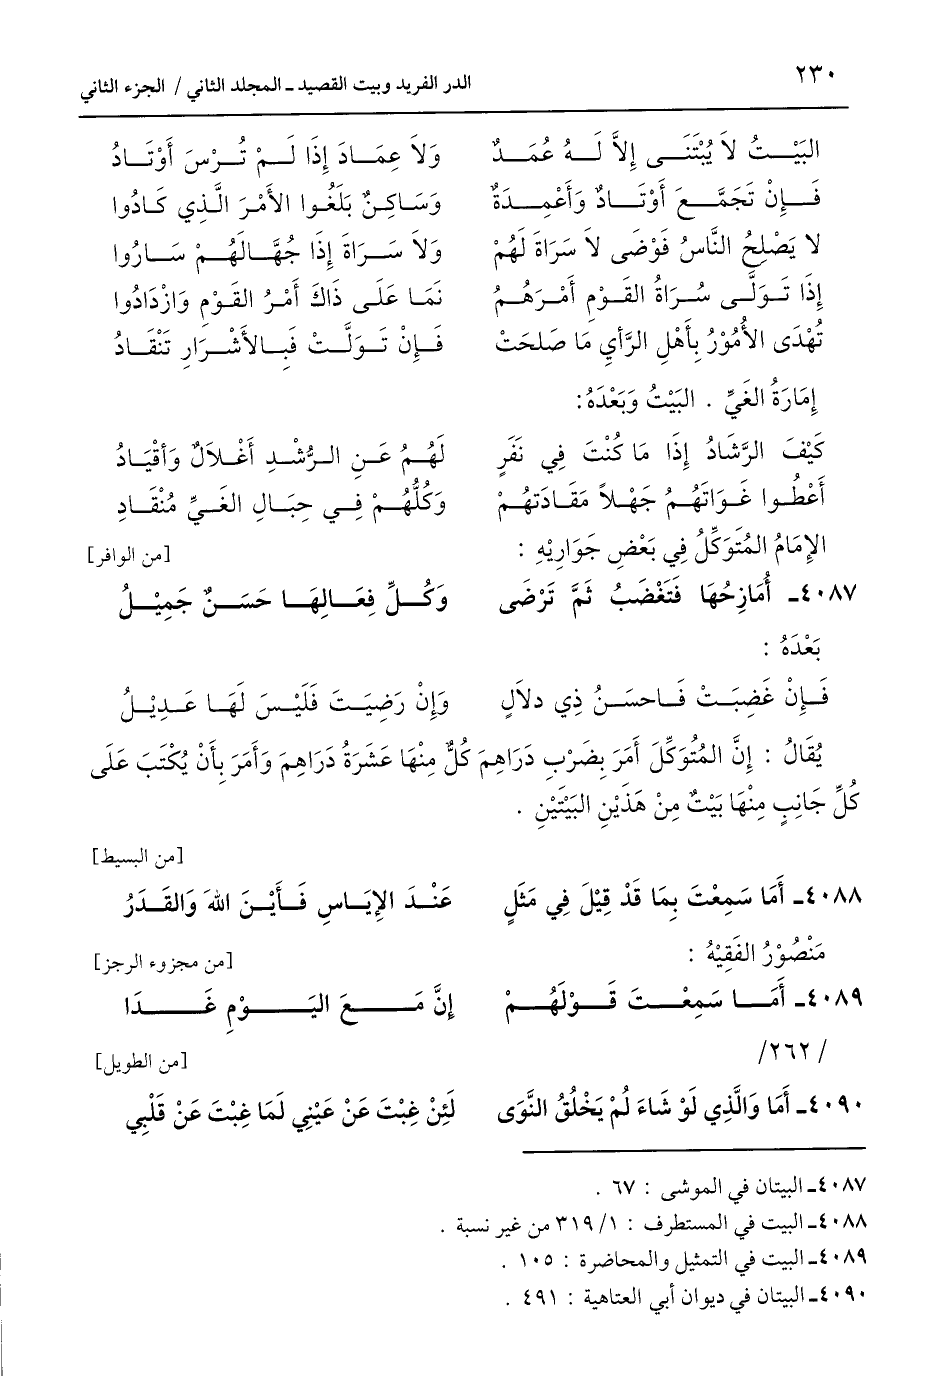 ٢٣٠ الدر الفريد وبيت القصيد ـ المجلد الثاني / الجزء الثاني
البَيْتُ لاَ يُبْتَنَى إِلاَّ لَهُ عُمَدٌ وَلاَ عِمَادَ إِذَا لَمْ تُرْسَ أَوْتَادُ
فَإِنْ تَجَمَّعَ أَوْتَادٌ وَأَعْمِدَةٌ وَسَاكِنٌ بَلَغُوا الأَمْرَ الَّذِي كَادُوا
لا يَصْلِحُ النَّاسُ فَوْضَى لاَ سَرَاةَ لَهُمْ وَلاَ سَرَاةَ إِذَا جُهَّالَهُمْ سَارُوا
إِذَا تَوَلَّى سُرَاةُ القَوْمِ أَمْرَهُمُ نَمَا عَلَى ذَاكَ أَمْرُ القَوْمِ وَازْدَادُوا
تُهْدَى الأُمُوْرُ بِأَهْلِ الرَّأيِ مَا صَلحَتْ فَإِنْ تَوَلَّتْ فَبِالأَشْرَارِ تَنْقَادُ
إِمَارَةُ الغَيِّ . البَيْتُ وَبَعْدَهُ:
كَيْفَ الرَّشَادُ إِذَا مَا كُنْتَ فِي نَفَرٍ لَهُمُ عَنِ الرُّشْدِ أَغْلاَلٌ وَأَقْيَادُ
أَعْطُوا غَوَاتَهُمُ جَهْلاً مَقَادَتهُمْ وَكُلُّهُمْ فِي حِبَالِ الغَيِّ مُنْقَادِ
الإِمَامُ المُتَوَكِّلُ فِي بَعْضِ جَوَارِيْهِ : [من الوافر]
٤٠٨٧ـ أُمَازِحُهَا فَتَغْضَبُ ثمَّ تَرْضَى وَكُلِّ فِعَالِهَا حَسَنٌ جَمِيْلُ
بَعْدَهُ :
فَإِنْ غَضِبَتْ فَاحسَنُ ذِي دلاَلٍ وَإِنْ رَضِيَتْ فَلَيْسَ لَهَا عَدِيْلُ
يُقَالُ : إِنَّ المُتَوكِّلَ أَمَرَ بِضَرْبِ دَرَاهِمَ كُلٌّ مِنْهَا عَشَرَةُ دَرَاهِمَ وَأَمَرَ بِأَنْ يُكْتَبَ عَلَى
كُلِّ جَانِبٍ مِنْهَا بَيْتٌ مِنْ هَذَيْنِ البَيْتَيْنِ .
[من البسيط]
٤٠٨٨ـ أَمَا سَمِعْتَ بِمَا قَدْ قِيْلَ فِي مَثَلٍ عَنْدَ الإِيَاسِ فَأَيْنَ اللهَ وَالقَدَرُ
مَنْصُوْرُ الفَقِيْهُ : [من مجزوء الرجز]
٤٠٨٩ـ أَمَا سَمِعْتَ قَوْلَهُمْ إِنَّ مَعَ اليَوْمِ غَدَا
/٢٦٢ /
[من الطويل]
٤٠٩٠ـ أَمَا وَالَّذِي لَوْ شَاءَ لَمْ يَخْلُقُ النَّوَى لَئِنْ غِبْتَ عَنْ عَيْنِي لَمَا غِبْتَ عَنْ قَلْبِي
٤٠٨٧ـ البيتان في الموشى : ٦٧ .
٤٠٨٨ـ البيت في المستطرف : ١/ ٣١٩ من غير نسبة .
٤٠٨٩ـ البيت في التمثيل والمحاضرة : ١٠٥ .
٤٠٩٠ـ البيتان في ديوان أبي العتاهية : ٤٩١ .